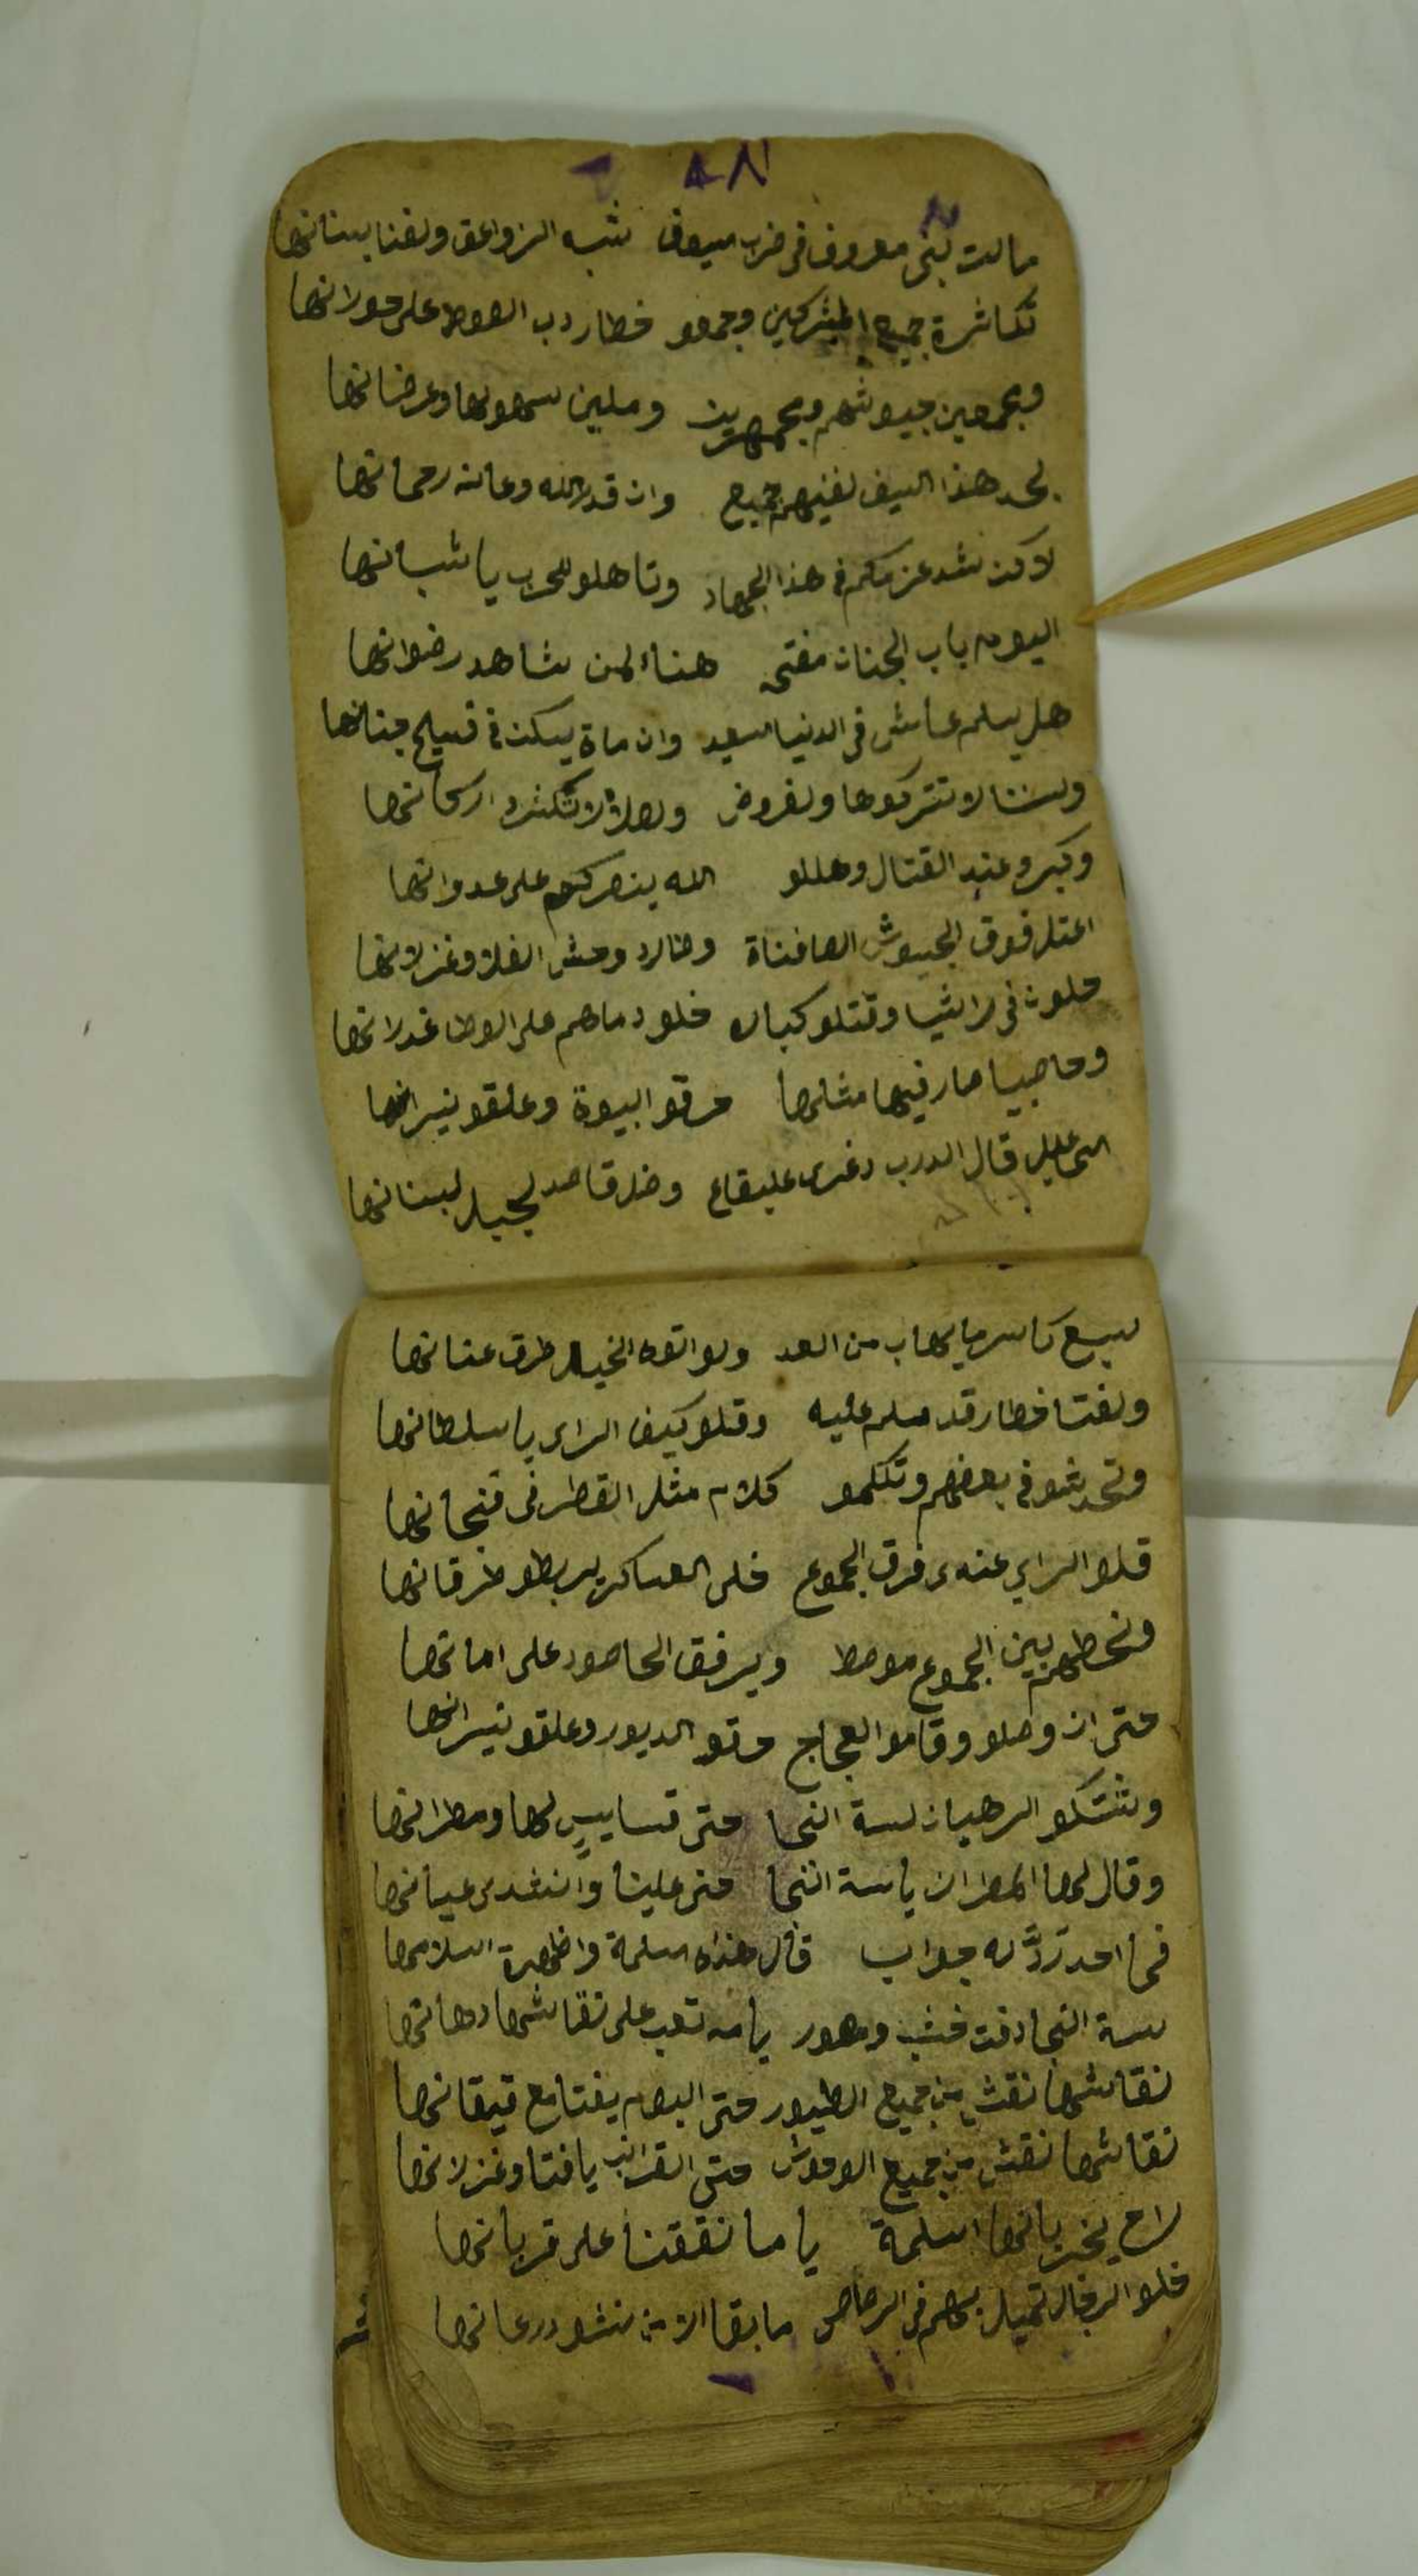 مالت بني معروف في ضرب سيوف شبه الزواعق ولفنا بسنانها
تكاثرة جميع المشركين وجمعو خطار دب الصوط على حورانها
وبجمعين جيوشهم وبجمهرين وملين سهولها وعرضانها
بحد هذا السيف نفنيهم جميع وان قدر الله وعانه رحمانها
لاكن نشد عزمكم في هذا الجهاد وتاهلو للحرب يا شبانها
اليوم باب الجنان مفتحه هناء لمن شاهد رضوانها
هل يسلم عايش في الدنيا سعيد وان ماة يسكن في فسيح جنانها
ولسننا لا تتركوها ولفروض ولصلاة لا تكثرو اركانها
وكبرو عند القتال وهللو الله ينصركم على عدوانها
اعتلا فوق الجيوش الصافناة وطارد وحش الفلا وغزلانها
حلوت في راشيا وقتلو كبار خلو دماهم على الوطا غدرانها
وحاصبيا صار فيها مثلها حرقو البيوة وعلقو نيرانها
قال الدرب دغري عليقاع وضل قاصد لجبل لبنانها
سبع كاسر ما يهاب من العد ولو اتوه الخيل طرق عنانها
ولفتا خطار قد سلم عليه وقلو كيف الراي يا سلطانها
وتحدثو في بعضهم وتكلمو كلام مثل القطر في فنجانها
قلو الراي عندي فرق الجموع خلي العساكر يربطو طرقانها
ونحطهم بين الجموع موسط ويرفق الحاصود على امانها
حتى ان وصلو وقامو العجاج حرقو الديور وعلقو نيرانها
وشتكو الرهبان لسة النحا حتى قساييس لها ومطرانها
وقال لها المطران يا سة النحا حني علينا وانشدي عيانها
فما احد تردَّ له جواب قال هذه اسلمة واظهرة اسلامها
سة النحا دفت خشب وصور يا مه تعب على نقاشها دهانها
نقاشها نقش من جميع الطيور حتى البوم يفتا مع قيقانها
نقاشها نقش من جميع الوحوش حتى القرانب يا فتا وغزلانها
راح يخبر بانها اسلمة ياما نققنا على قربانها
خلو الرجال تميل بهم في الرصاص ما بقا الا من نشو درعانها